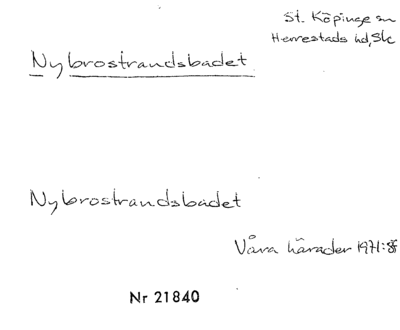 St. Köpinge sn
Herrestads hd, Sk
Nybrostrandsbadet
Nybrostrandsbadet
Våra härader 1971:
Nr 21840